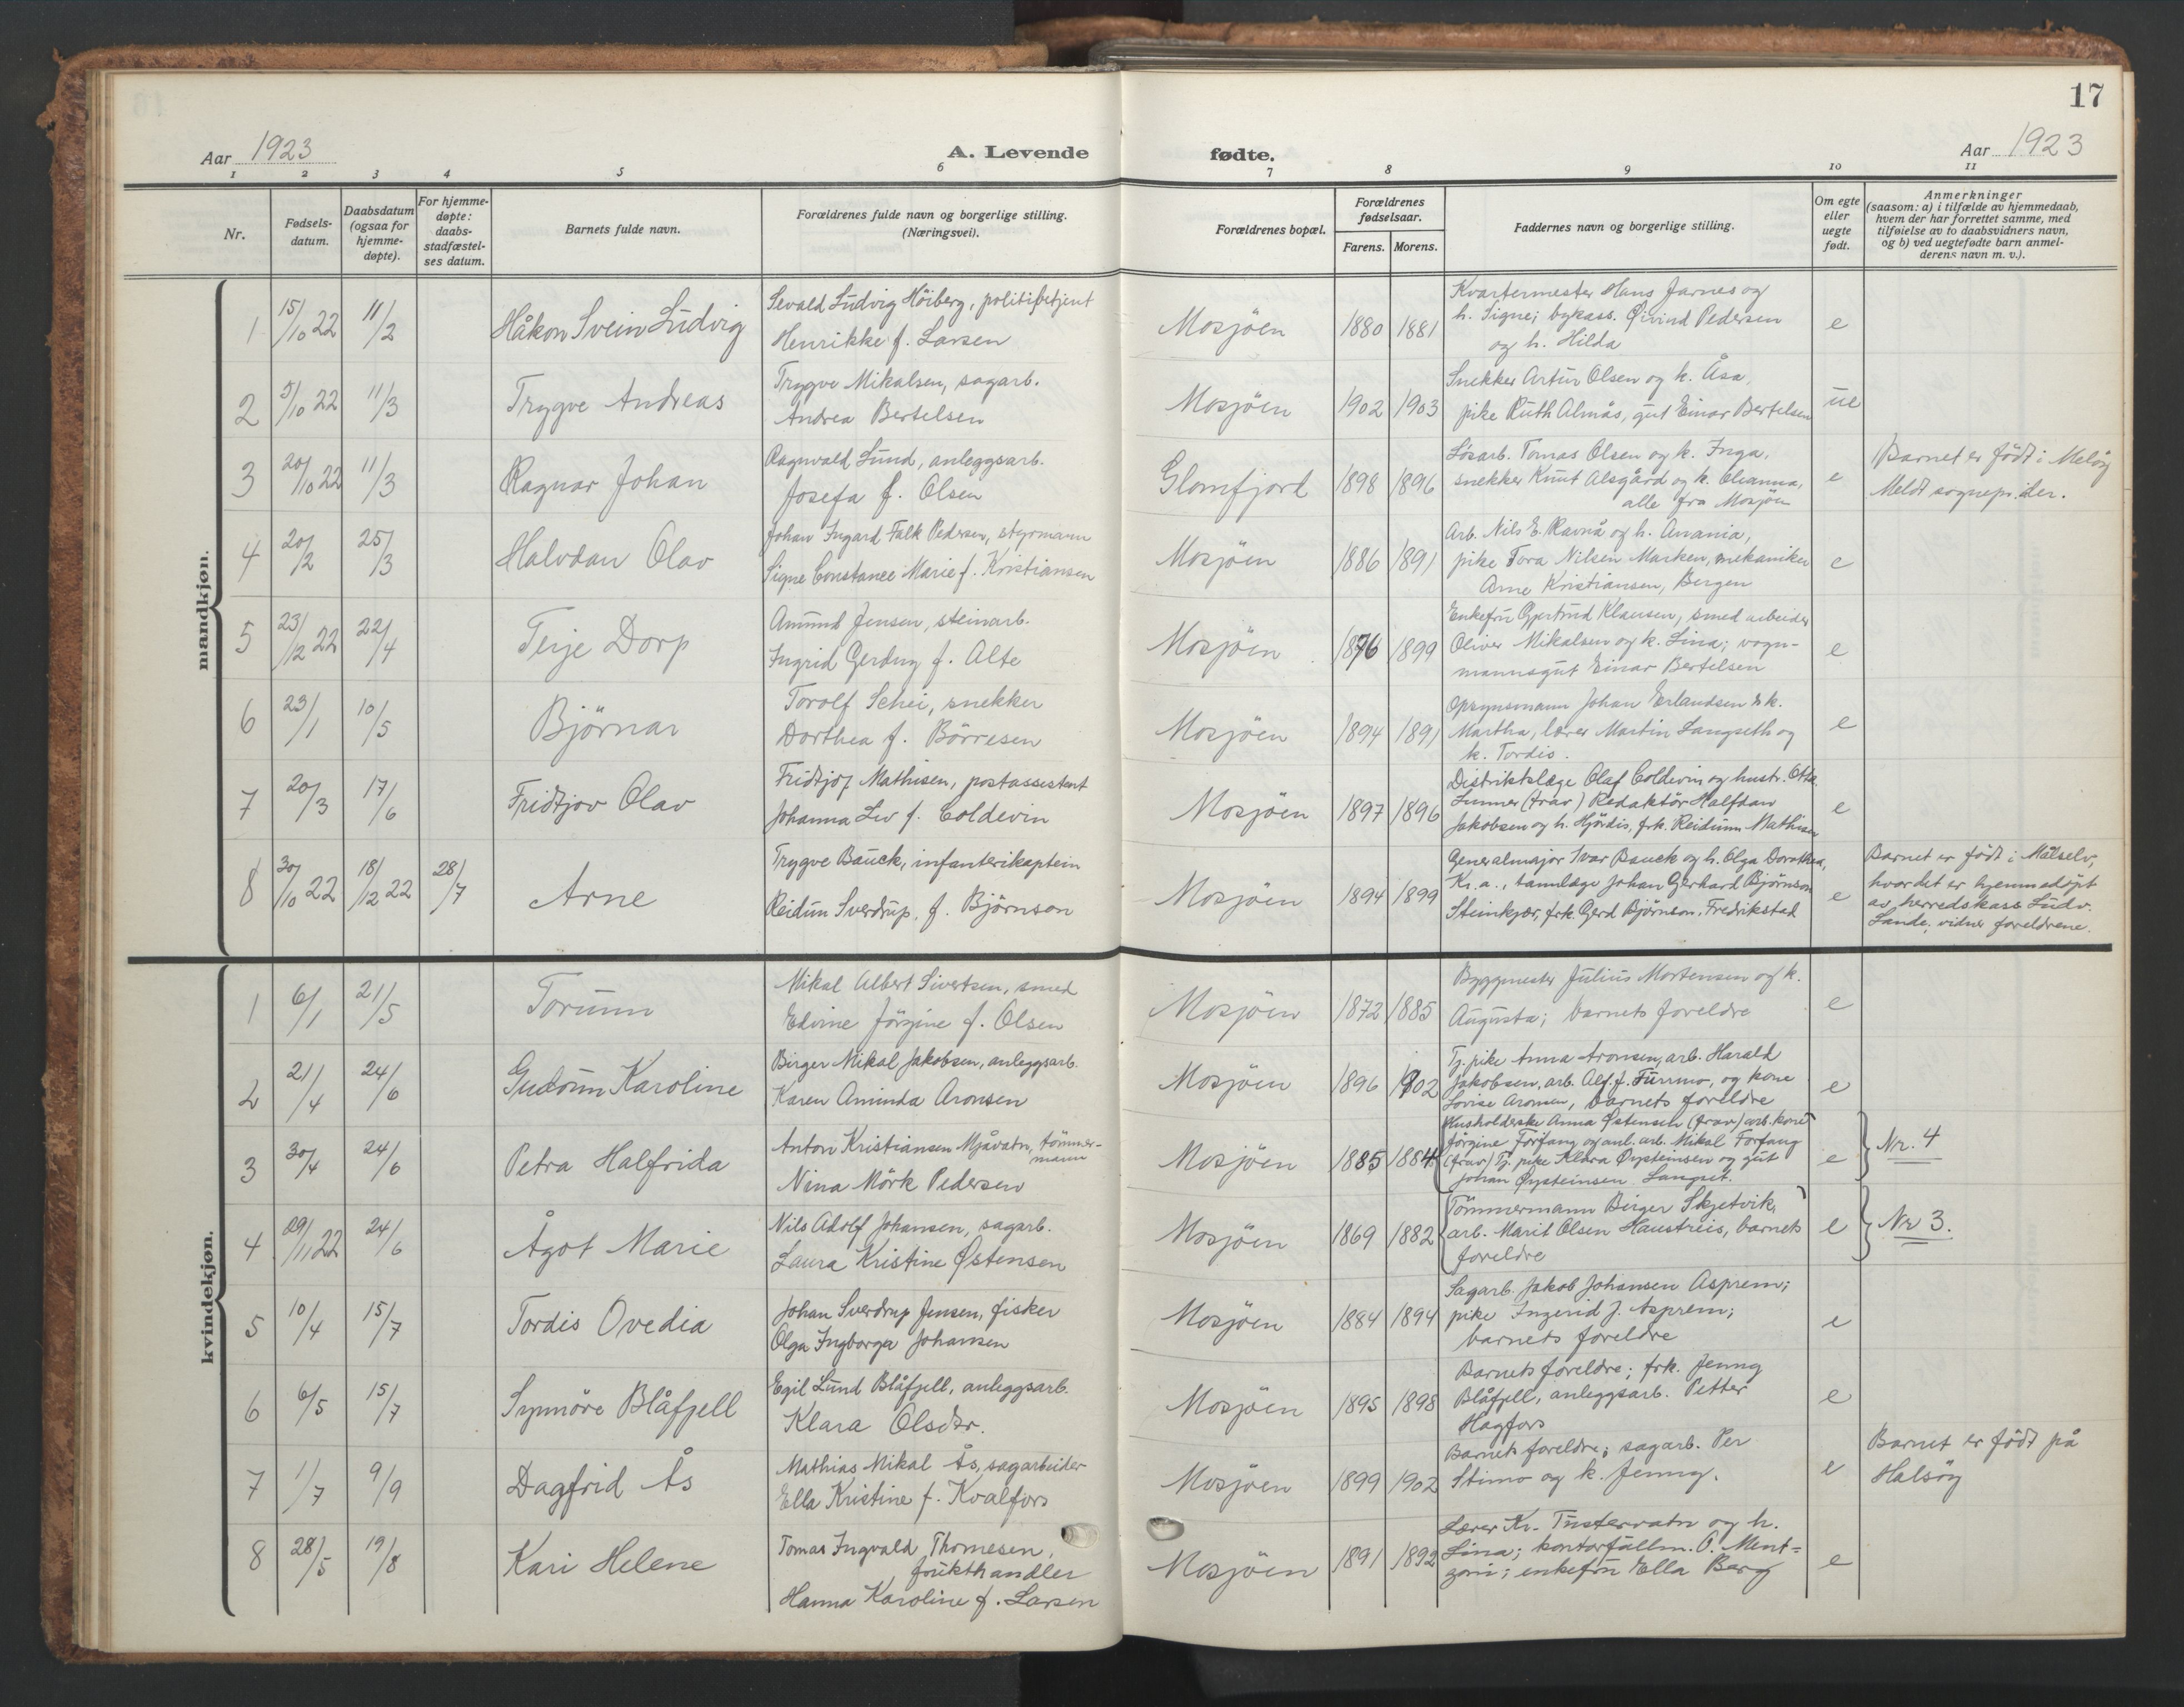 17
Aar 1923
A. Levende fødte.
Aar 1923
1 2 3 4 5 6 7 8 9 10 11
Nr.
Fødsels-
datum.
Daabsdatum
(ogsaa for
hjemme-
døpte).
For hjemme-
døpte:
daabs-
stadfæstel-
ses datum.
Barnets fulde navn.
Forældrenes fulde navn og borgerlige stilling.
(Næringsvei).
Forældrenes bopæl.
Forældrenes
fødselsaar.
Farens. Morens.
Faddernes navn og borgerlige stilling.
Om egte
eller
uegte
født.
Anmerkninger
(saasom: a) i tilfælde av hjemmedaab,
hvem der har forrettet samme, med
tilføielse av to daabsvidners navn,
og b) ved uegtefødte barn anmel-
derens navn m. v.).
mandkjøn.
1 15/10 22 11/2 Håkon Svein Ludvig
Sevald Ludvig Höiberg, politibetjent
Henrikke f. Larsen
Mosjöen 1880 1881
Kvartermester Hans Jarnes og
h. Signe; bykass. Øivind Pedersen
og h. Hilda
e
2 5/10 22 11/3 Trygve Andreas
Trygve Mikalsen, sagarb.
Andrea Bertelsen
Mosjöen 1902 1903
Snekker Artur Olsen og k. Åsa,
pike Ruth Almås, gut Einar Bertelsen
ue
3 20/10 22 11/3 Ragnar Johan
Ragnvald Lund, anleggsarb.
Josefa f. Olsen
Glomfjord 1898 1896
Løsarb. Tomas Olsen og k. Inga,
snekker Knut Alsgård og k. Olianna,
alle fra Mosjöen
e
Barnet er födt i Melöy
Meldt sognepr. der.
4 20/2 25/3 Halvdan Olav
Johan Ingard Falk Pedersen, styrmann
Signe Constance Marie f. Kristiansen
Mosjöen 1886 1891
Arb. Nils E. Ravnå og h. Anania,
pike Tora Nilsen Marken, mekaniker
Arne Kristiansen, Bergen
e
5 23/12 22 22/4 Terje Dorp
Amund Jensen, steinarb.
Ingrid Gerdny f. Alte
Mosjöen 1876 1899
Enkefru Gjertrud Klausen, smed arbeider
Oliver Mikalsen og k. Lina; vogn-
mannsgut Einar Bertelsen
e
6 23/1 10/5 Björnar
Torolf Schei, snekker
Dorthea f. Börresen
Mosjöen 1894 1891
Opsynsmann Johan Erlandsen & k.
Martha, lærer Martin Langseth og
k. Tordis.
e
7 20/3 17/6 Fridtjov Olav
Fridtjof Mathisen, postassistent
Johanna Liv f. Coldevin
Mosjöen 1897 1896
Distriktslæge Olaf Coldevin og hustr. Otta
(frav) Redaktör Halfdan
Jakobsen og h. Hjördis, frk. Reidunn Mathisen
e
8 30/10 22 18/12 22 28/7 Arne
Trygve Bauck, infanterikaptein
Reidun Sverdrup, f. Björnson
Mosjöen 1894 1899
Generalmajor Ivar Bauck og h. Olga Dorothea,
Kr.a., tannlæge Johan Gerhard Bjørnson
Steinkjær, frk. Gerd Björnson, Fredrikstad
e
Barnet er født i Målselv,
hvor det er hjemmedöpt
av herredskass. Ludv.
Lande; vidner foreldrene.
kvindekjøn.
1 6/1 21/5 Torunn
Mikal Albert Sivertsen, smed
Edvine Jörgine f. Olsen
Mosjöen 1872 1885
Byggmester Julius Mortensen og k.
Augusta; barnets foreldre
e
2 21/4 24/6 Gudrun Karoline
Birger Mikal Jakobsen, anleggsarb.
Karen Aminda Aronsen
Mosjöen 1896 1902
Tj. pike Anna Aronsen, arb. Harald
Jakobsen, arb. Alf. J. Furrmo, og kone
Lovise Aronsen, barnets foreldre
e
3 30/4 24/6 Petra Halfrida
Anton Kristiansen Mjåvatn, tömmer-
mann
Nina Mörk Pedersen
Mosjöen 1885 1884
Husholderske Anna Østensen (frav) arb. kone
Jörgine Forfang og anl. arb. Mikal Forfang
(frav) Tj. pike Klara Øysteinsen og gut
Johan Øysteinsen Langset.
e
Nr. 4
4 29/11 22 24/6 Ågot Marie
Nils Adolf Johansen, sagarb.
Laura Kristine Østensen
Mosjöen 1869 1882
Tömmermann Birger Skjetvik,
arb. Marit Olsen Haustreis, barnets
foreldre
e
Nr 3.
5 10/4 15/7 Tordis Ovedia
Johan Sverdrup Jensen, fisker
Olga Ingborga Johansen
Mosjöen 1884 1894
Sagarb. Jakob Johansen Asprem;
pike Ingerid J. Asprem;
barnets foreldre
e
6 6/5 15/7 Synnöve Blåfjell
Egil Lund Blåfjell, anleggsarb.
Klara Olsdtr.
Mosjöen 1895 1898
Barnets foreldre; frk. Jenny
Blåfjell, anleggsarb. Petter
Hagfors
e
7 1/7 9/9 Dagfrid Ås
Mathias Mikal Ås, sagarbeider
Ella Kristine f. Kvalfors
Mosjöen 1899 1902
Barnets foreldre; sagarb. Per
Stimo og k. Jenny.
e
Barnet er født på
Halsöy
8 28/5 19/8 Kari Helene
Tomas Ingvald Thomesen,
frukthandler
Hanna Karoline f. Larsen
Mosjöen 1891 1892
Lærer Kr. Tustervatn og h.
Lina; kontorfullm. O. Ment-
zoni; enkefru Ella Berg
e